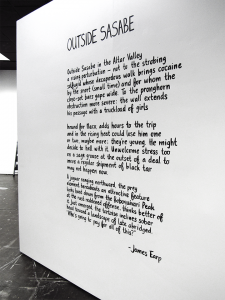 OUTSIDE SASABE
Outside Sasabe in the Altar Valley
a rising perturbation – not to the strobing
safeguard whose decapodous walk brings cocaine
by the snort (small time) and for whom the
close-set bars gape wide. To the pronghorn
obstruction more severe: the wall extends
his passage with a truckload of girls
bound for Phoenix, adds hours to the trip
and in the rising heat could lose him one
or two, maybe more: they're young. He might
decide to hell with it. Unwelcome stress too
on a sage grouse at the outset of a deal to
move a regular shipment of black tar
may not happen now.
A jaguar ranging northward, the prey
element heretofore an attractive feature
looks hard down from the Baboquivari Peak
at the rust-reddened offense, thinks better of
it. Just emerged, the tortoise inclines sober
head toward a landscape of late abridged.
"Who's going to pay for all of this?"
-James Earp